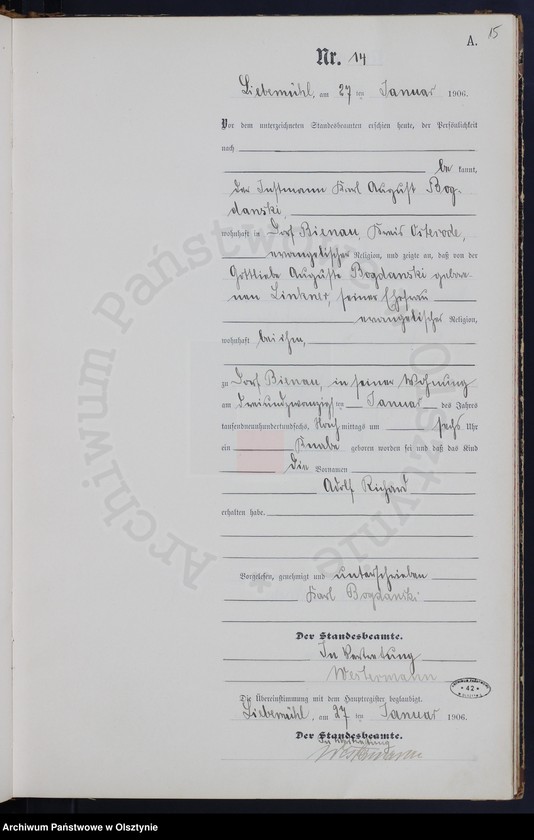 15
A.
Nr. 14
Liebemühl, am 27 ten Januar 1906.
Vor dem unterzeichneten Standesbeamten erschien heute, der Persönlichkeit
nach
be kannt,
der Instmann Karl August Bog-
danski,
wohnhaft in Dorf Bienau, Kreis Osterode,
evangelischer Religion, und zeigte an, daß von der
Gottliebe Auguste Bogdanski gebore-
nen Linkner, seiner Ehefrau
evangelischer Religion,
wohnhaft bei ihm,
zu Dorf Bienau, in seiner Wohnung
am dreiundzwanzigsten Januar des Jahres
tausendneunhundertundsechs, Nachmittags um sechs Uhr
ein Knabe geboren worden sei und daß das Kind
die Vornamen
Adolf Richard
erhalten habe.
Vorgelesen, genehmigt und unterschrieben
Karl Bogdanski
Der Standesbeamte.
In Vertretung
Westermann
Die Übereinstimmung mit dem Hauptregister beglaubigt.
Liebemühl, am 27 ten Januar 1906.
Der Standesbeamte.
In Vertretung
Westermann
* 42 *
Archiwum Państwowe w Olsztynie *
Archiwum Państwowe w Olsztynie